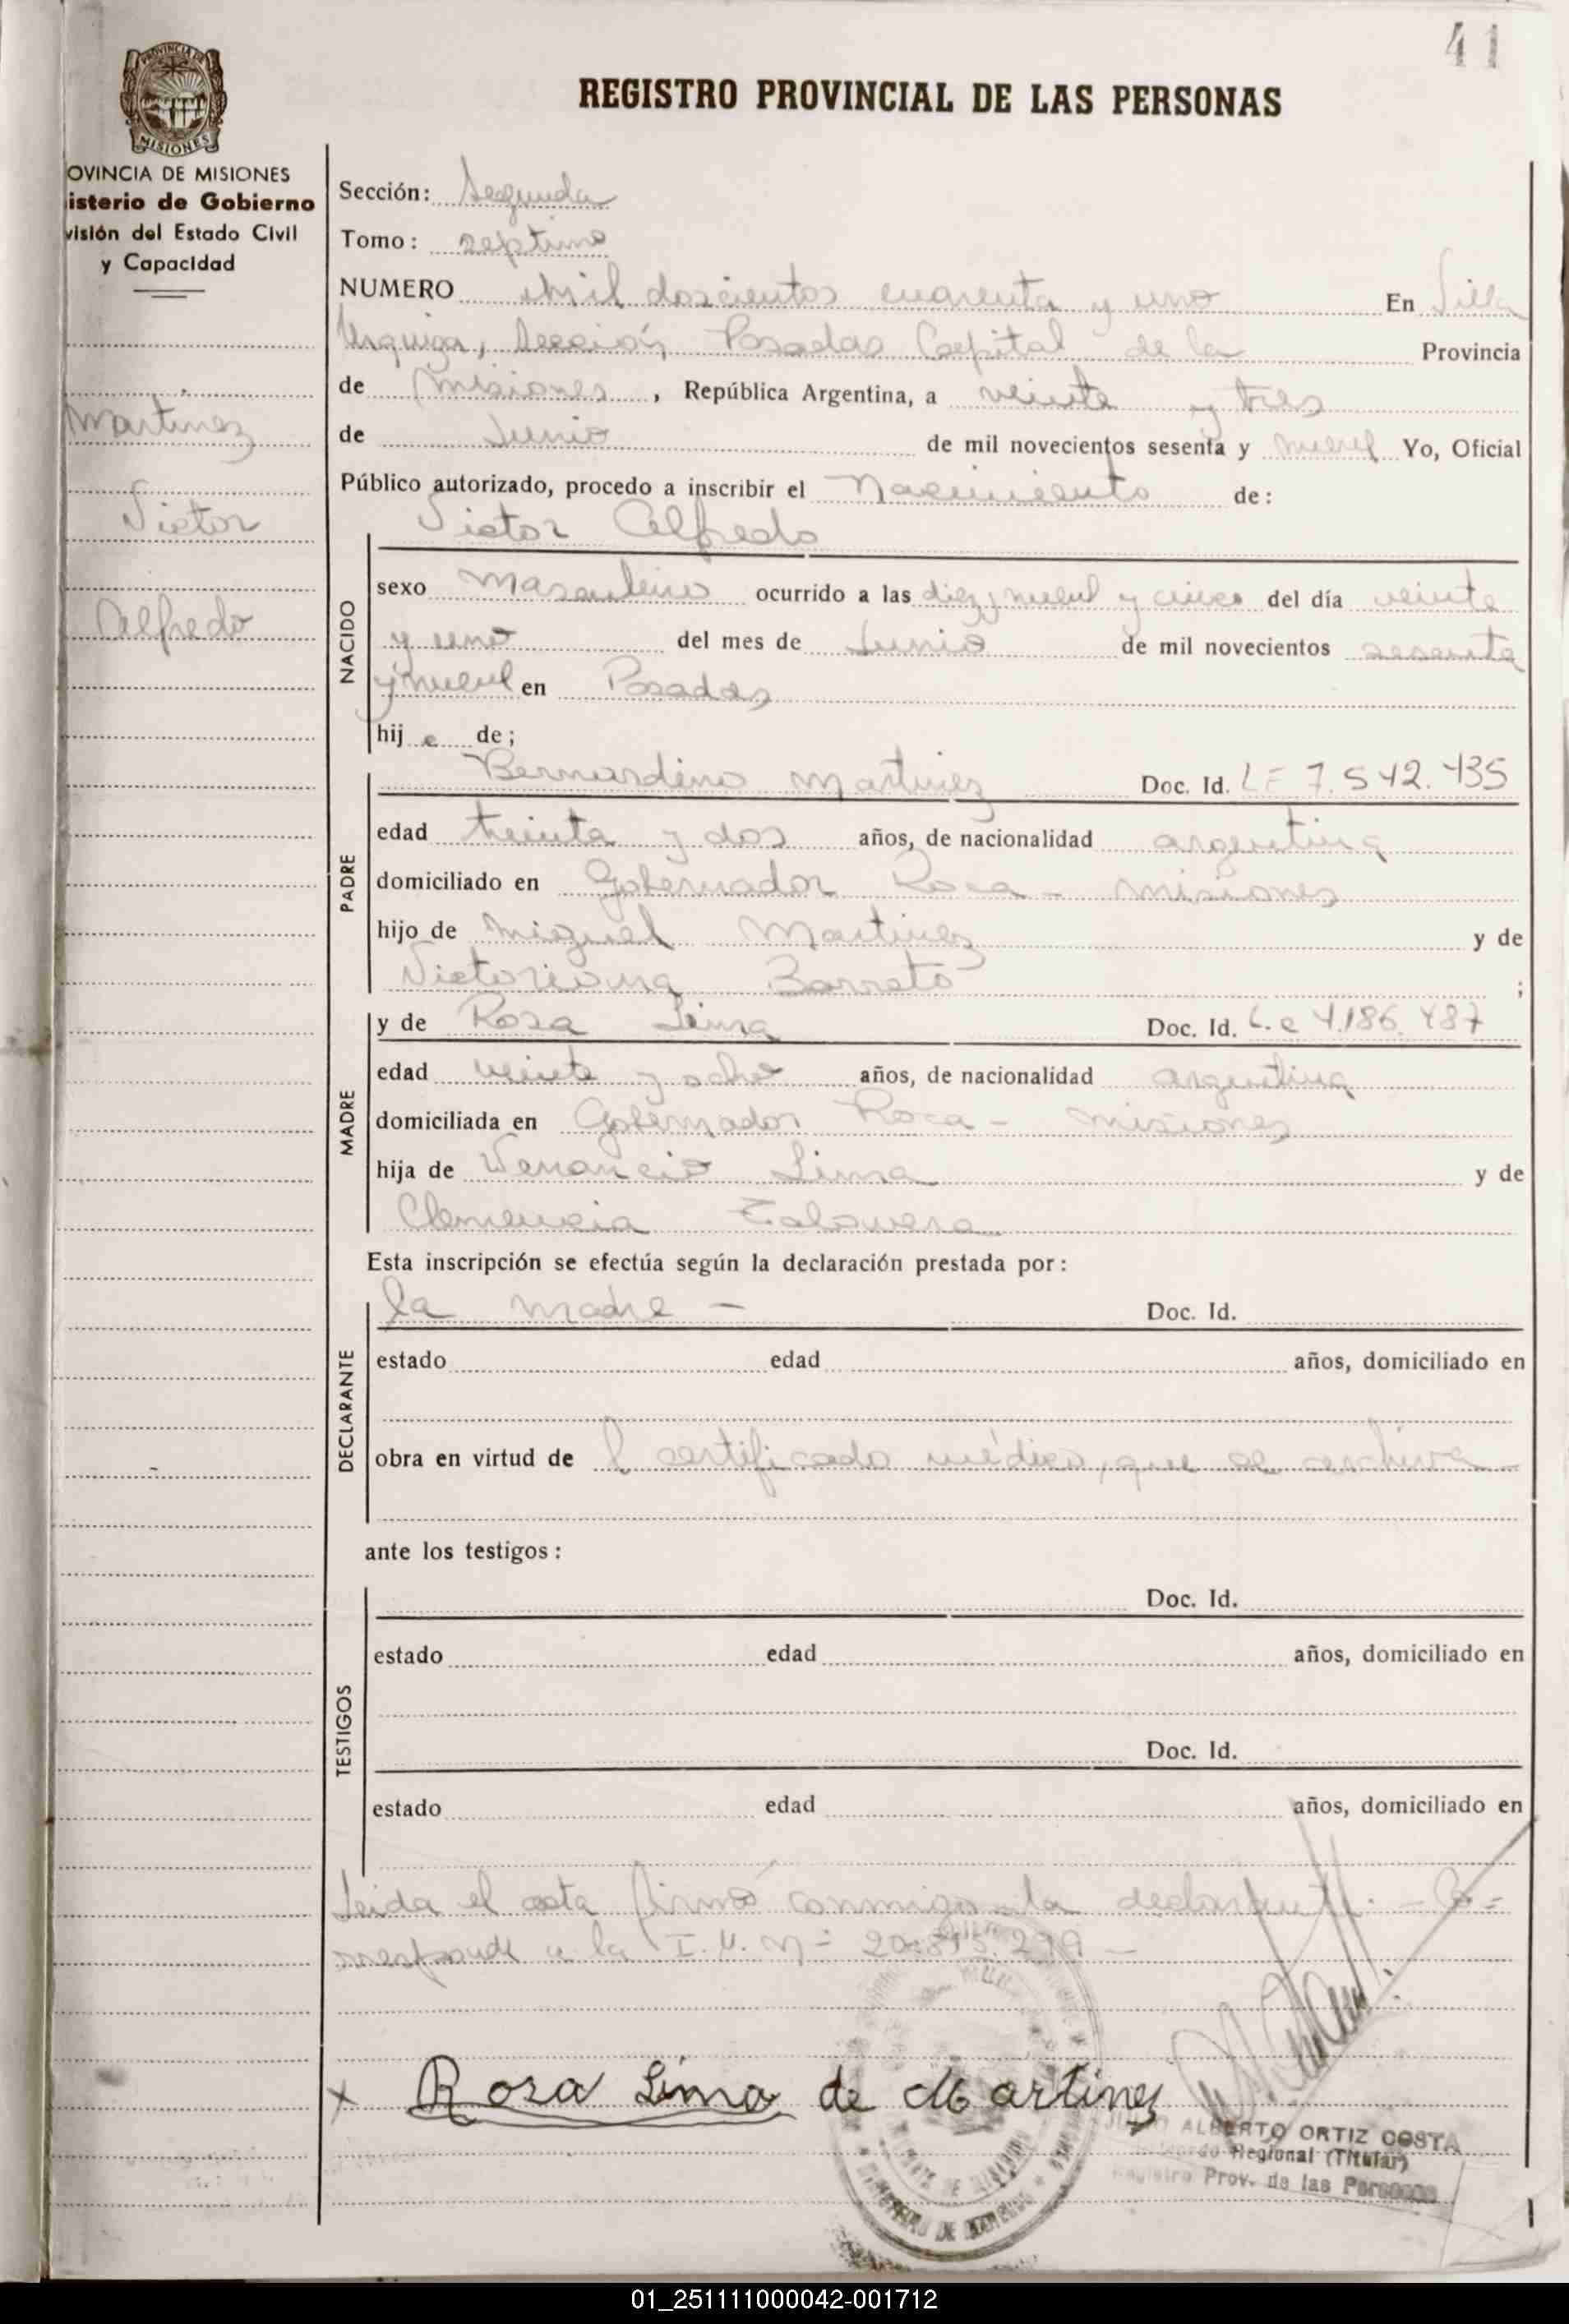 41
PROVINCIA DE
MISIONES
REGISTRO PROVINCIAL DE LAS PERSONAS
OVINCIA DE MISIONES
isterio de Gobierno
visión del Estado Civil
y Capacidad
Martinez
Victor
Alfredo
Sección: Segunda
Tomo: septimo
NUMERO Mil doscientos cuarenta y uno En Villa
Urquiza, Sección Posadas Capital de la Provincia
de Misiones, República Argentina, a veinte y tres
de Junio de mil novecientos sesenta y nueve Yo, Oficial
Público autorizado, procedo a inscribir el Nacimiento de:
Victor Alfredo
NACIDO
sexo Masculino ocurrido a las diez y nueve y cinco del día veinte
y uno del mes de Junio de mil novecientos sesenta
y nueve en Posadas
hijo de;
PADRE
Bernardino Martinez Doc. Id. LE 7.542.435
edad treinta y dos años, de nacionalidad argentina
domiciliado en Gobernador Roca - Misiones
hijo de Miguel Martinez y de
Victoriana Barreto ;
MADRE
y de Rosa Lima Doc. Id. L.C 4.186.487
edad veinte y ocho años, de nacionalidad argentina
domiciliada en Gobernador Roca - Misiones
hija de Venancio Lima y de
Clemencia Talavera
Esta inscripción se efectúa según la declaración prestada por:
DECLARANTE
la madre - Doc. Id.
estado edad años, domiciliado en
obra en virtud de l certificado médico, que se archiva -
ante los testigos:
TESTIGOS
Doc. Id.
estado edad años, domiciliado en
Doc. Id.
estado edad años, domiciliado en
Leida el acta firmó conmigo la declarante. - Co=
rresponde a la I.U. Nº 20.815.299 -
x Rosa Lima de Martinez
ALBERTO ORTIZ COSTA
Regional (Titular)
Registro Prov. de las Personas
01_251111000042-001712